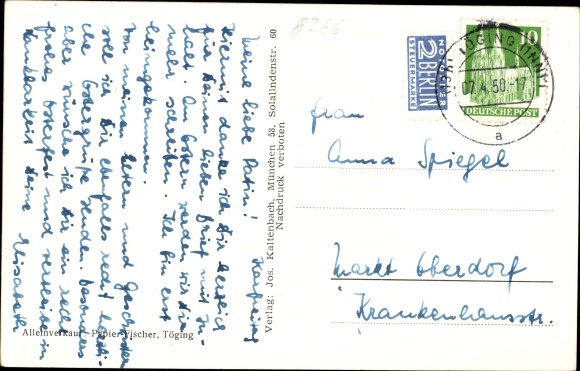 #266
Karfreitag
Meine liebe Patin!
Hiermit danke ich Dir herzlich
für Deinen lieben Brief mit In-
halt. An Ostern werden wir Dir
mehr schreiben. Ich bin erst
heimgekommen.
Von meinen Eltern und Geschwister
soll ich Dir ebenfalls recht herzli-
che Ostergrüße senden. Besonders
aber wünsche ich Dir ein recht
frohes Osterfest und verbleibe in
Dankbarkeit Deine
Elisabeth
Alleinverkauf: Papier-Fischer, Töging
Verlag: Jos. Kaltenbach, München 58, Solalindenstr. 60
Nachdruck verboten
NOTOPFER
2 BERLIN
STEUERMARKE
10
DEUTSCHE POST
TÖGING (INN)
07.4.50-17
a
Frau
Anna Spiegel
Markt Oberdorf
Krankenhausstr.